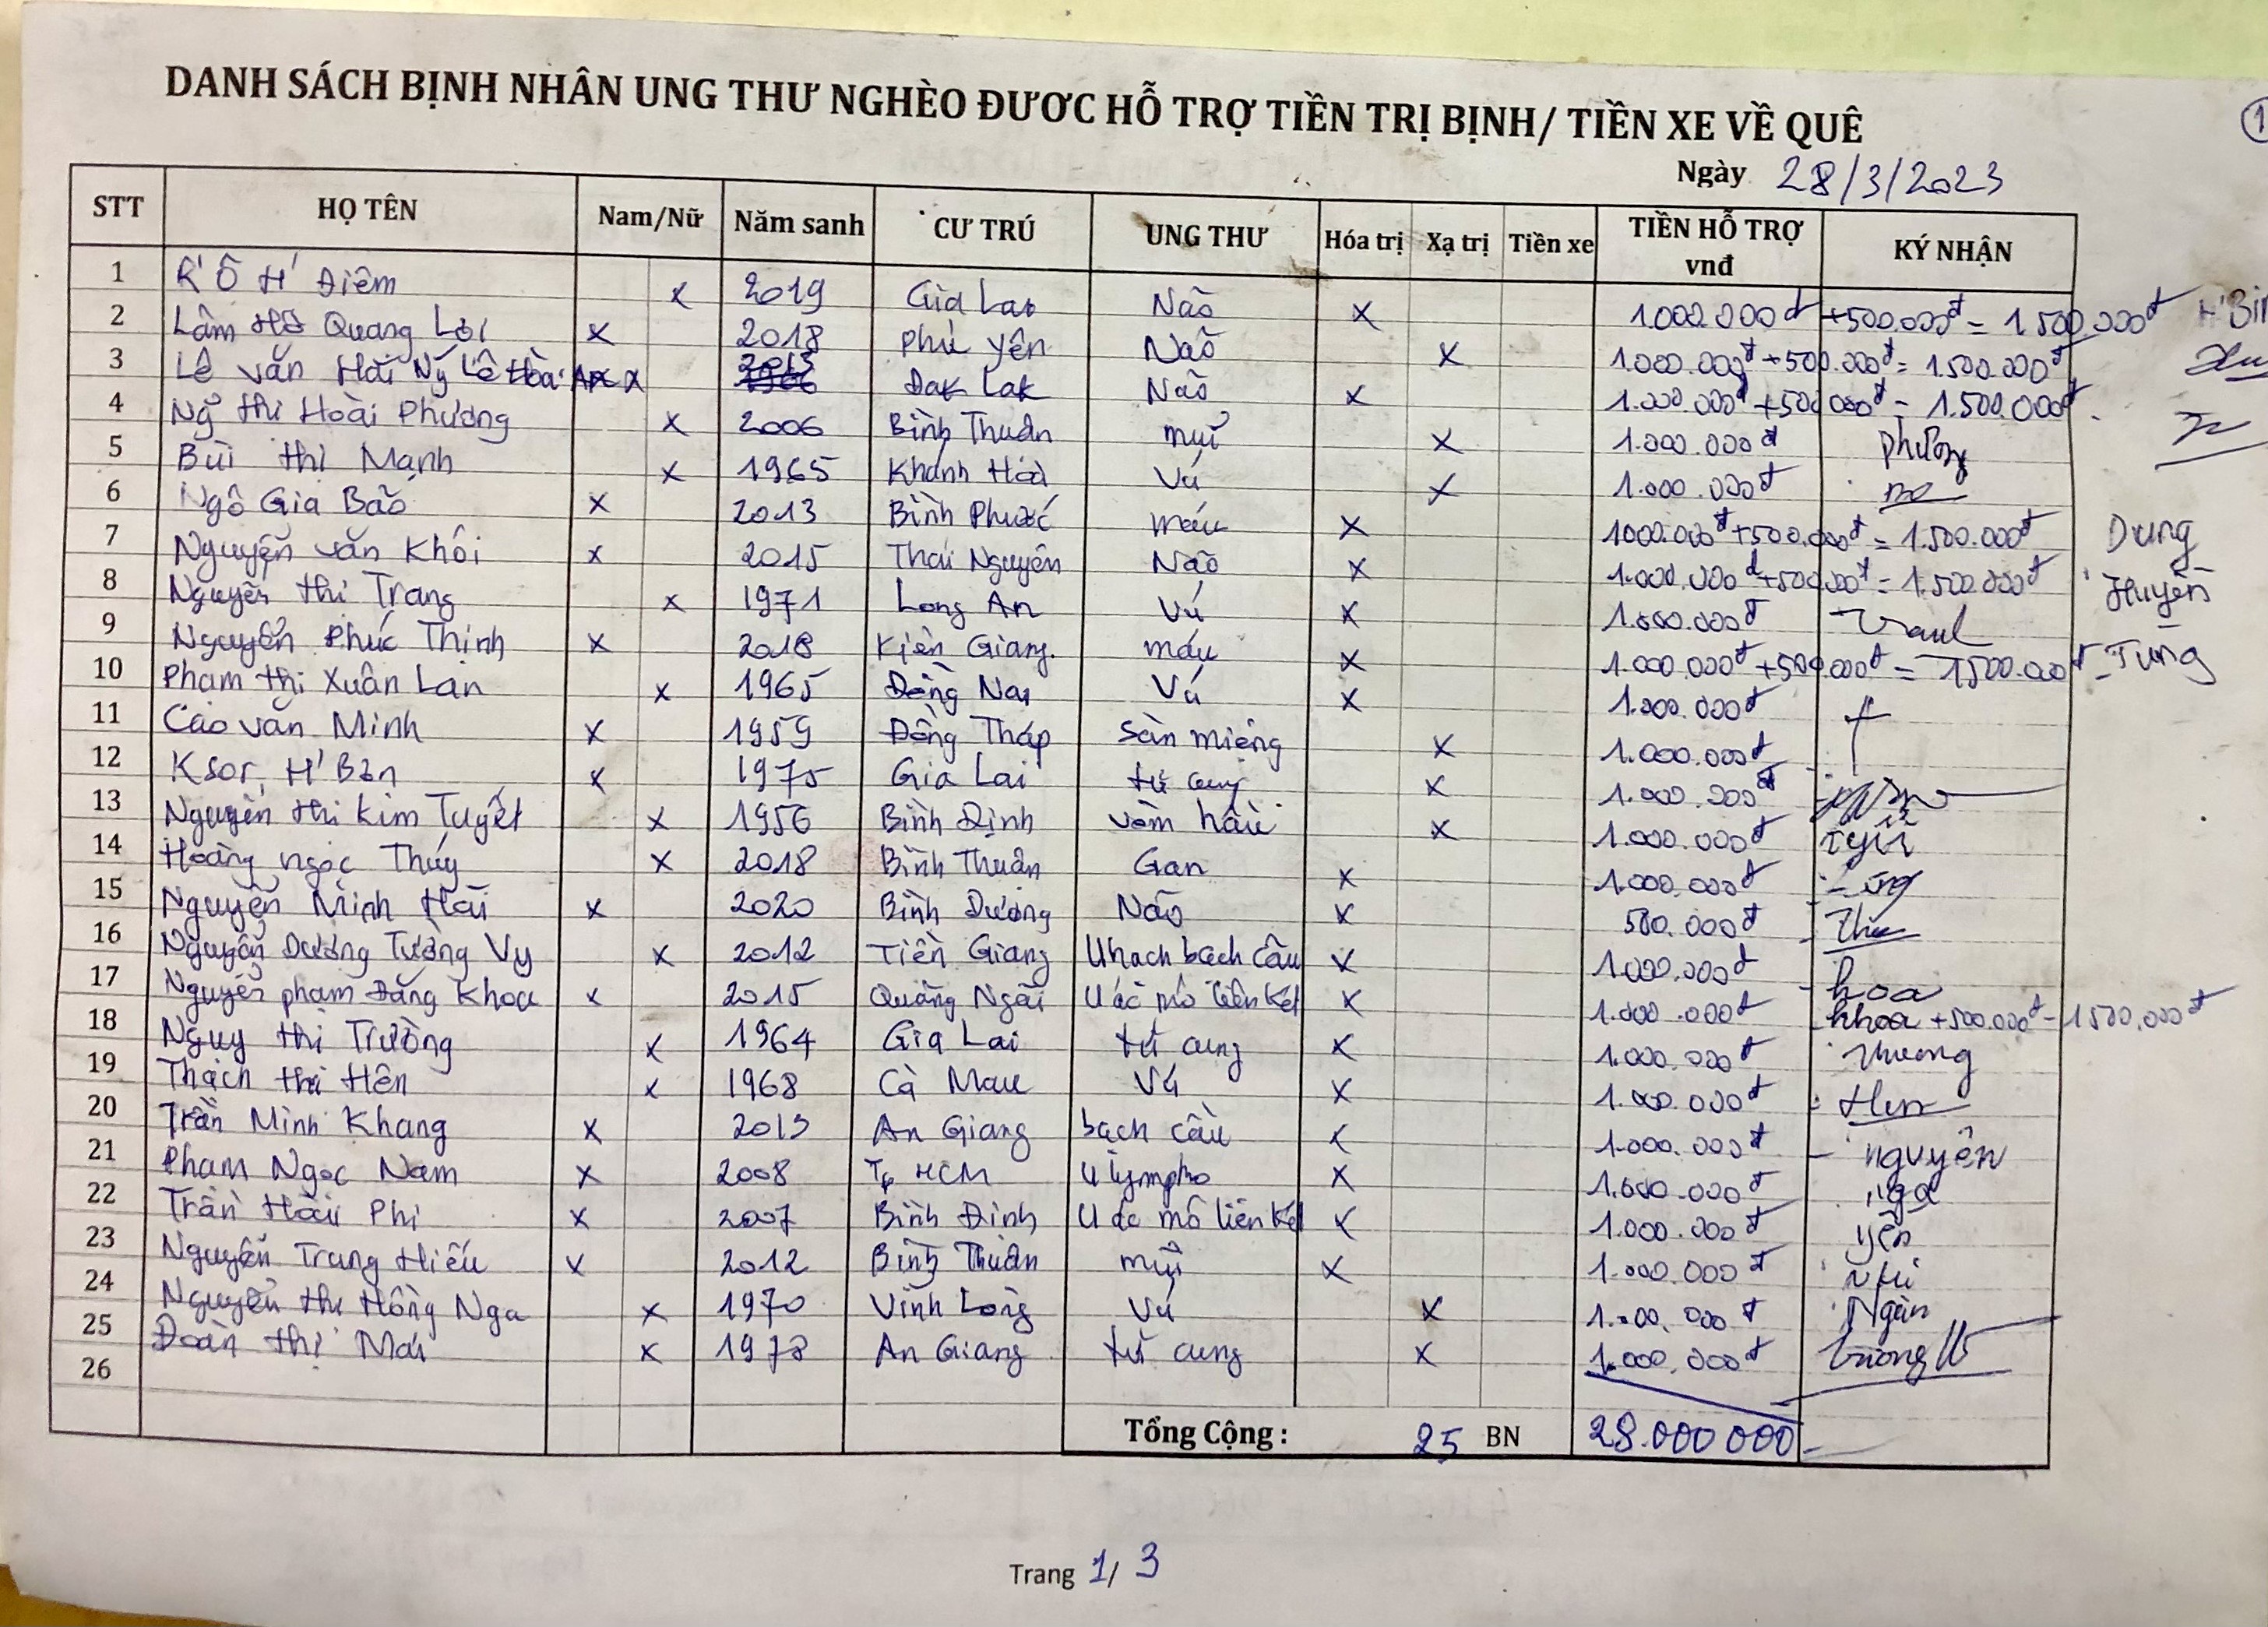 DANH SÁCH BỊNH NHÂN UNG THƯ NGHÈO ĐƯƠC HỖ TRỢ TIỀN TRỊ BỊNH/ TIỀN XE VỀ QUÊ
1
Ngày 28/3/2023
STT HỌ TÊN Nam/Nữ Năm sanh CƯ TRÚ UNG THƯ Hóa trị Xạ trị Tiền xe TIỀN HỖ TRỢ vnđ KÝ NHẬN
1 R' Ô H' Điêm x 2019 Gia Lao Não x 1.000.000đ +500.000đ = 1.500.000đ
2 Lâm Quang Lợi x 2018 Phú Yên Não x 1.000.000đ +500.000đ = 1.500.000đ
3 Lê Văn Hải x 2013 Đak Lak Não x 1.000.000đ +500.000đ = 1.500.000đ
4 Ng Thị Hoài Phương x 2006 Bình Thuận mũi x 1.000.000đ phương
5 Bùi Thị Mạnh x 1965 Khánh Hòa Vú x 1.000.000đ
6 Ngô Gia Bảo x 2013 Bình Phước máu x 1000.000đ +500.000đ = 1.500.000đ Dung
7 Nguyễn văn Khôi x 2015 Thái Nguyên Não x 1.000.000đ +500.000đ = 1.500.000đ Huyền
8 Nguyễn Thị Trang x 1971 Long An Vú x 1.000.000đ
9 Nguyễn Phúc Thịnh x 2018 Kiên Giang máu x 1.000.000đ +500.000đ = 1500.000đ Tùng
10 Phạm Thị Xuân Lan x 1965 Đồng Nai Vú x 1.000.000đ
11 Cao văn Minh x 1959 Đồng Tháp Sàn miệng x 1.000.000đ
12 Ksor H' Ban x 1975 Gia Lai tử cung x 1.000.000đ
13 Nguyễn thị Kim Tuyết x 1956 Bình Định vòm hầu x 1.000.000đ
14 Hoàng ngọc Thúy x 2018 Bình Thuận Gan x 1.000.000đ
15 Nguyễn Minh Hải x 2020 Bình Dương Não x 500.000đ Thu
16 Nguyễn Dương Tường Vy x 2012 Tiền Giang U hạch bạch cầu x 1.000.000đ hoa
17 Nguyễn phạm Đăng Khoa x 2015 Quảng Ngãi U ác mô liên kết x 1.000.000đ khoa +500.000đ = 1500.000đ
18 Nguy thị Trường x 1964 Gia Lai tử cung x 1.000.000đ
19 Thạch thị Hên x 1968 Cà Mau Vú x 1.000.000đ Hen
20 Trần Minh Khang x 2013 An Giang bạch cầu x 1.000.000đ nguyên
21 Phạm Ngọc Nam x 2008 Tp HCM U lympho x 1.000.000đ nga
22 Trần Hải Phi x 2007 Bình Định U ác mô liên kết x 1.000.000đ yến
23 Nguyễn Trung Hiếu x 2012 Bình Thuận mũi x 1.000.000đ Nhi
24 Nguyễn thị Hồng Nga x 1970 Vĩnh Long Vú x 1.000.000đ Ngân
25 Đoàn thị Mai x 1978 An Giang tử cung x 1.000.000đ
26
Tổng Cộng : 25 BN 28.000 000
Trang 1/ 3